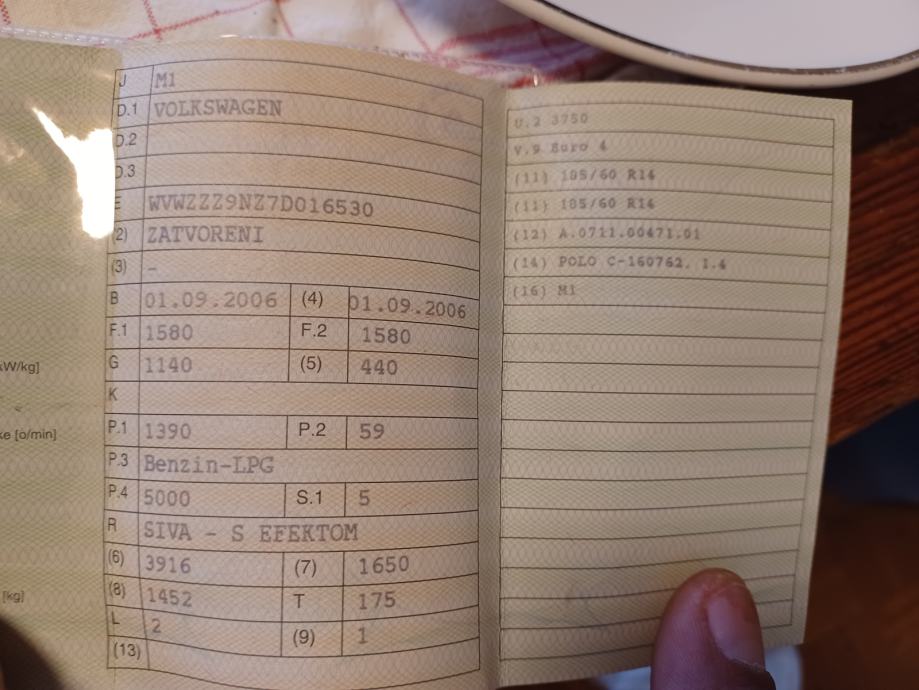 J M1
D.1 VOLKSWAGEN
D.2
D.3
E WVWZZZ9NZ7D016530
(2) ZATVORENI
(3) -
B 01.09.2006 (4) 01.09.2006
F.1 1580 F.2 1580
G 1140 (5) 440
K
P.1 1390 P.2 59
P.3 Benzin-LPG
P.4 5000 S.1 5
R SIVA - S EFEKTOM
(6) 3916 (7) 1650
(8) 1452 T 175
L 2 (9) 1
(13)
W/kg]
ke [o/min]
[kg]
U.2 3750
V.9 Euro 4
(11) 185/60 R14
(11) 185/60 R14
(12) A.0711.00471.01
(14) POLO C-160762. 1.4
(16) M1